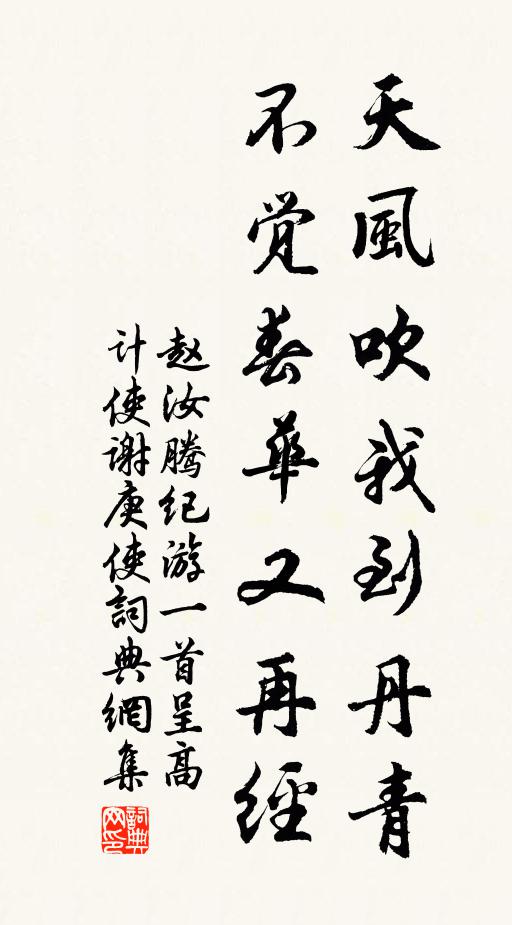 天風吹我到丹青
不覺春華又再經
赵汝腾纪游一首呈高
计使谢庚使詞典網集
詞典网印